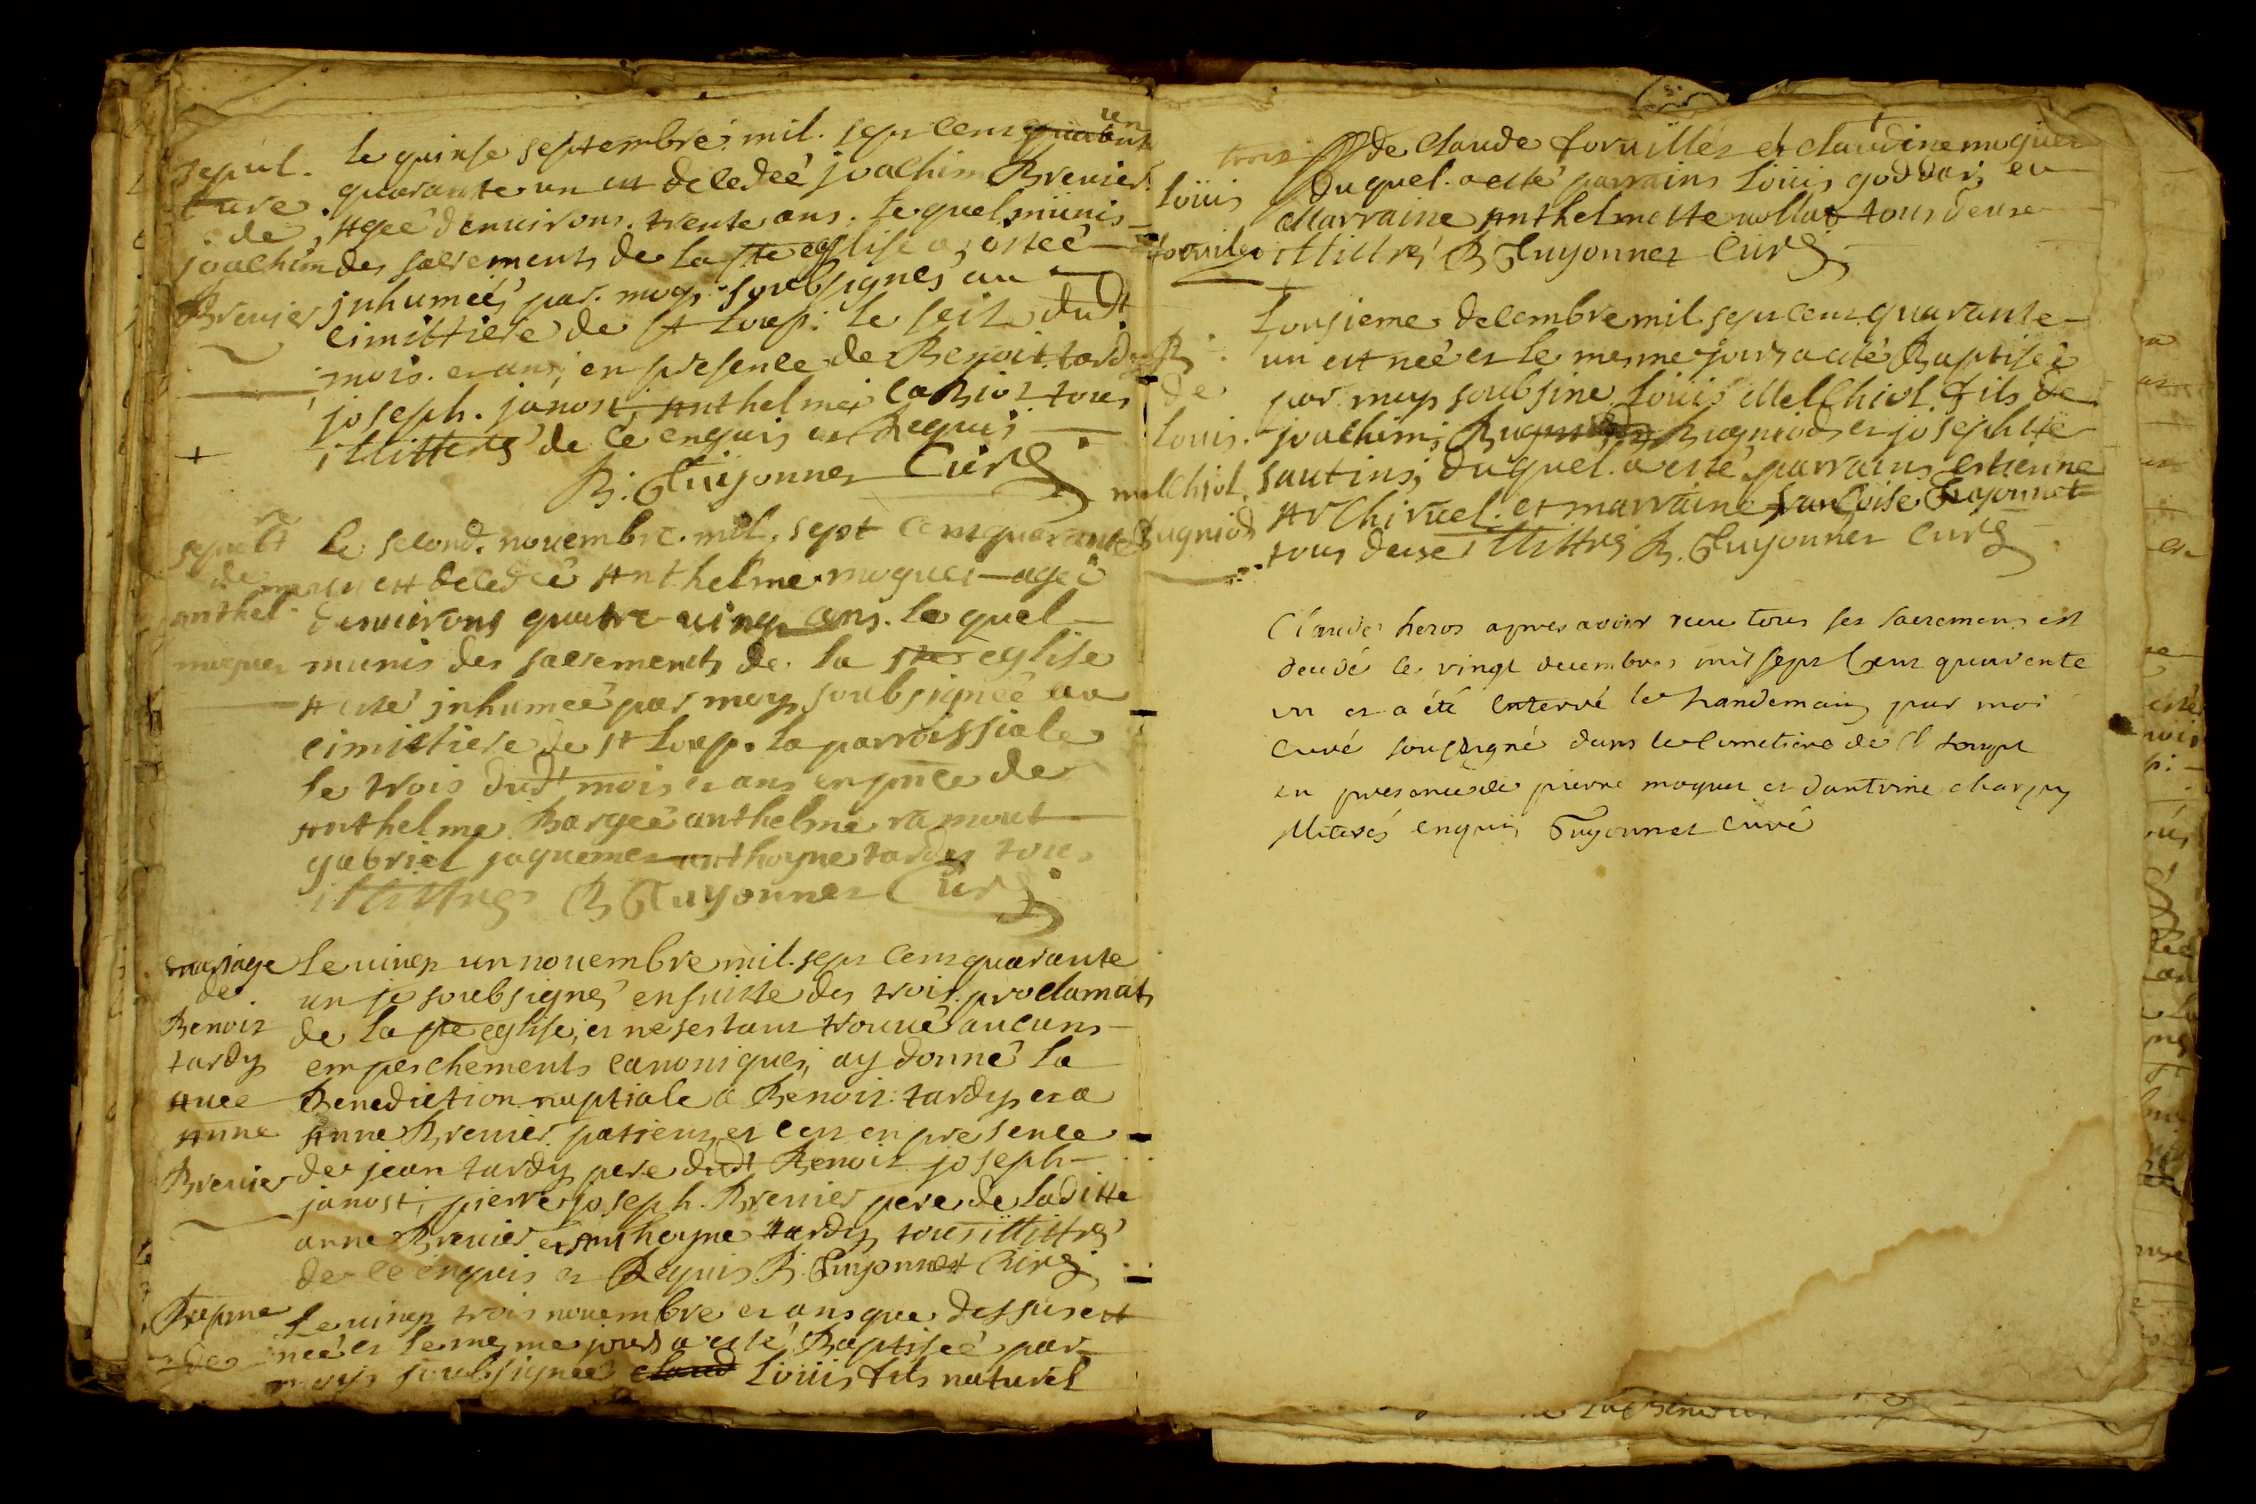 sepul.
ture
de
joachim
Brevier
le quinse septembre mil. sept cens
quarante un est decedeé joachim Brevier
Ageé denvirons trente ans. lequel munis
des sacrements de la ste eglise a esteé
inhumeé par moy soubsignes au
cimittiere de st loup. le seize dudt
mois et an, en presence de Benoit tardy
joseph. janost, Anthelme tous
illittres de ce enquis et Requis
B. Guyonnet Curé
sepultre
de
anthel
moguet
le second novembre. mil. sept cens quarante
un est decedeé Anthelme moguet ageé
denvirons quatre ving ans. le quel
munis des sacrements de la ste eglise
A esté inhumeé par moy soubsigneé au
cimittiere de st Loup. la parroissiale
le trois dudt mois et ans en pnce de
Anthelme Bargeé anthelme ramout
gabriel jaquemet anthoyne tardy tous
illittres B Guyonnet Curé
mariage
de
Benoit
tardy
avec
Anne
Brevier
Le vint un novembre mil. sept cens quarante
un je soubsignes ensuitte des trois proclamats
de la ste eglise, et ne sestant trouvé aucuns
empeschements canoniques, ay donné la
Benediction nuptiale a Benoit tardy et a
Anne Brevier et cen en presence
de jean tardy pere dudt Benoit joseph
janost, pierre joseph. Brevier pere de laditte
anne Brevier et Anthoyne tardy tous illittres
de ce enquis et Requis B. Guyonnet Curé
Bapme
de
Le vinet trois novembre et ans que dessus est
neé et le mesme jours a esté Baptiseé par
moys soubsigneé claud Loüis fils naturel
Loüis
de claude forvilles et claudine moguet
duquel a esté parrains Loüis goddar, eu
Marraine Anthelmette mollat tous deuse
illittres B Guyonnet Curé
B
de
Louis.
melchiol
Bugniod
Lonsieme decembre mil sept cens quarante
un est neé et le mesme jours a esté Baptiseé
par moys soubsine Loüis Melchiol fils de
joachim, Bugniod et josephte
sautins, duquel a esté parrains estienne
et marraine francoise Guyonnet
tous deuse illittres B. Guyonnet Curé
Claude heros apres avoir recu tous ses sacremens est
decedé le vingt decembre mil sept Cens quarente
un et a été Enterré le landemain par moi
Curé soussigné dans le Cimetiere de st Loup
en presence de pierre moguet et dantoine charpy
illiterés enquis Guyonnet Curé